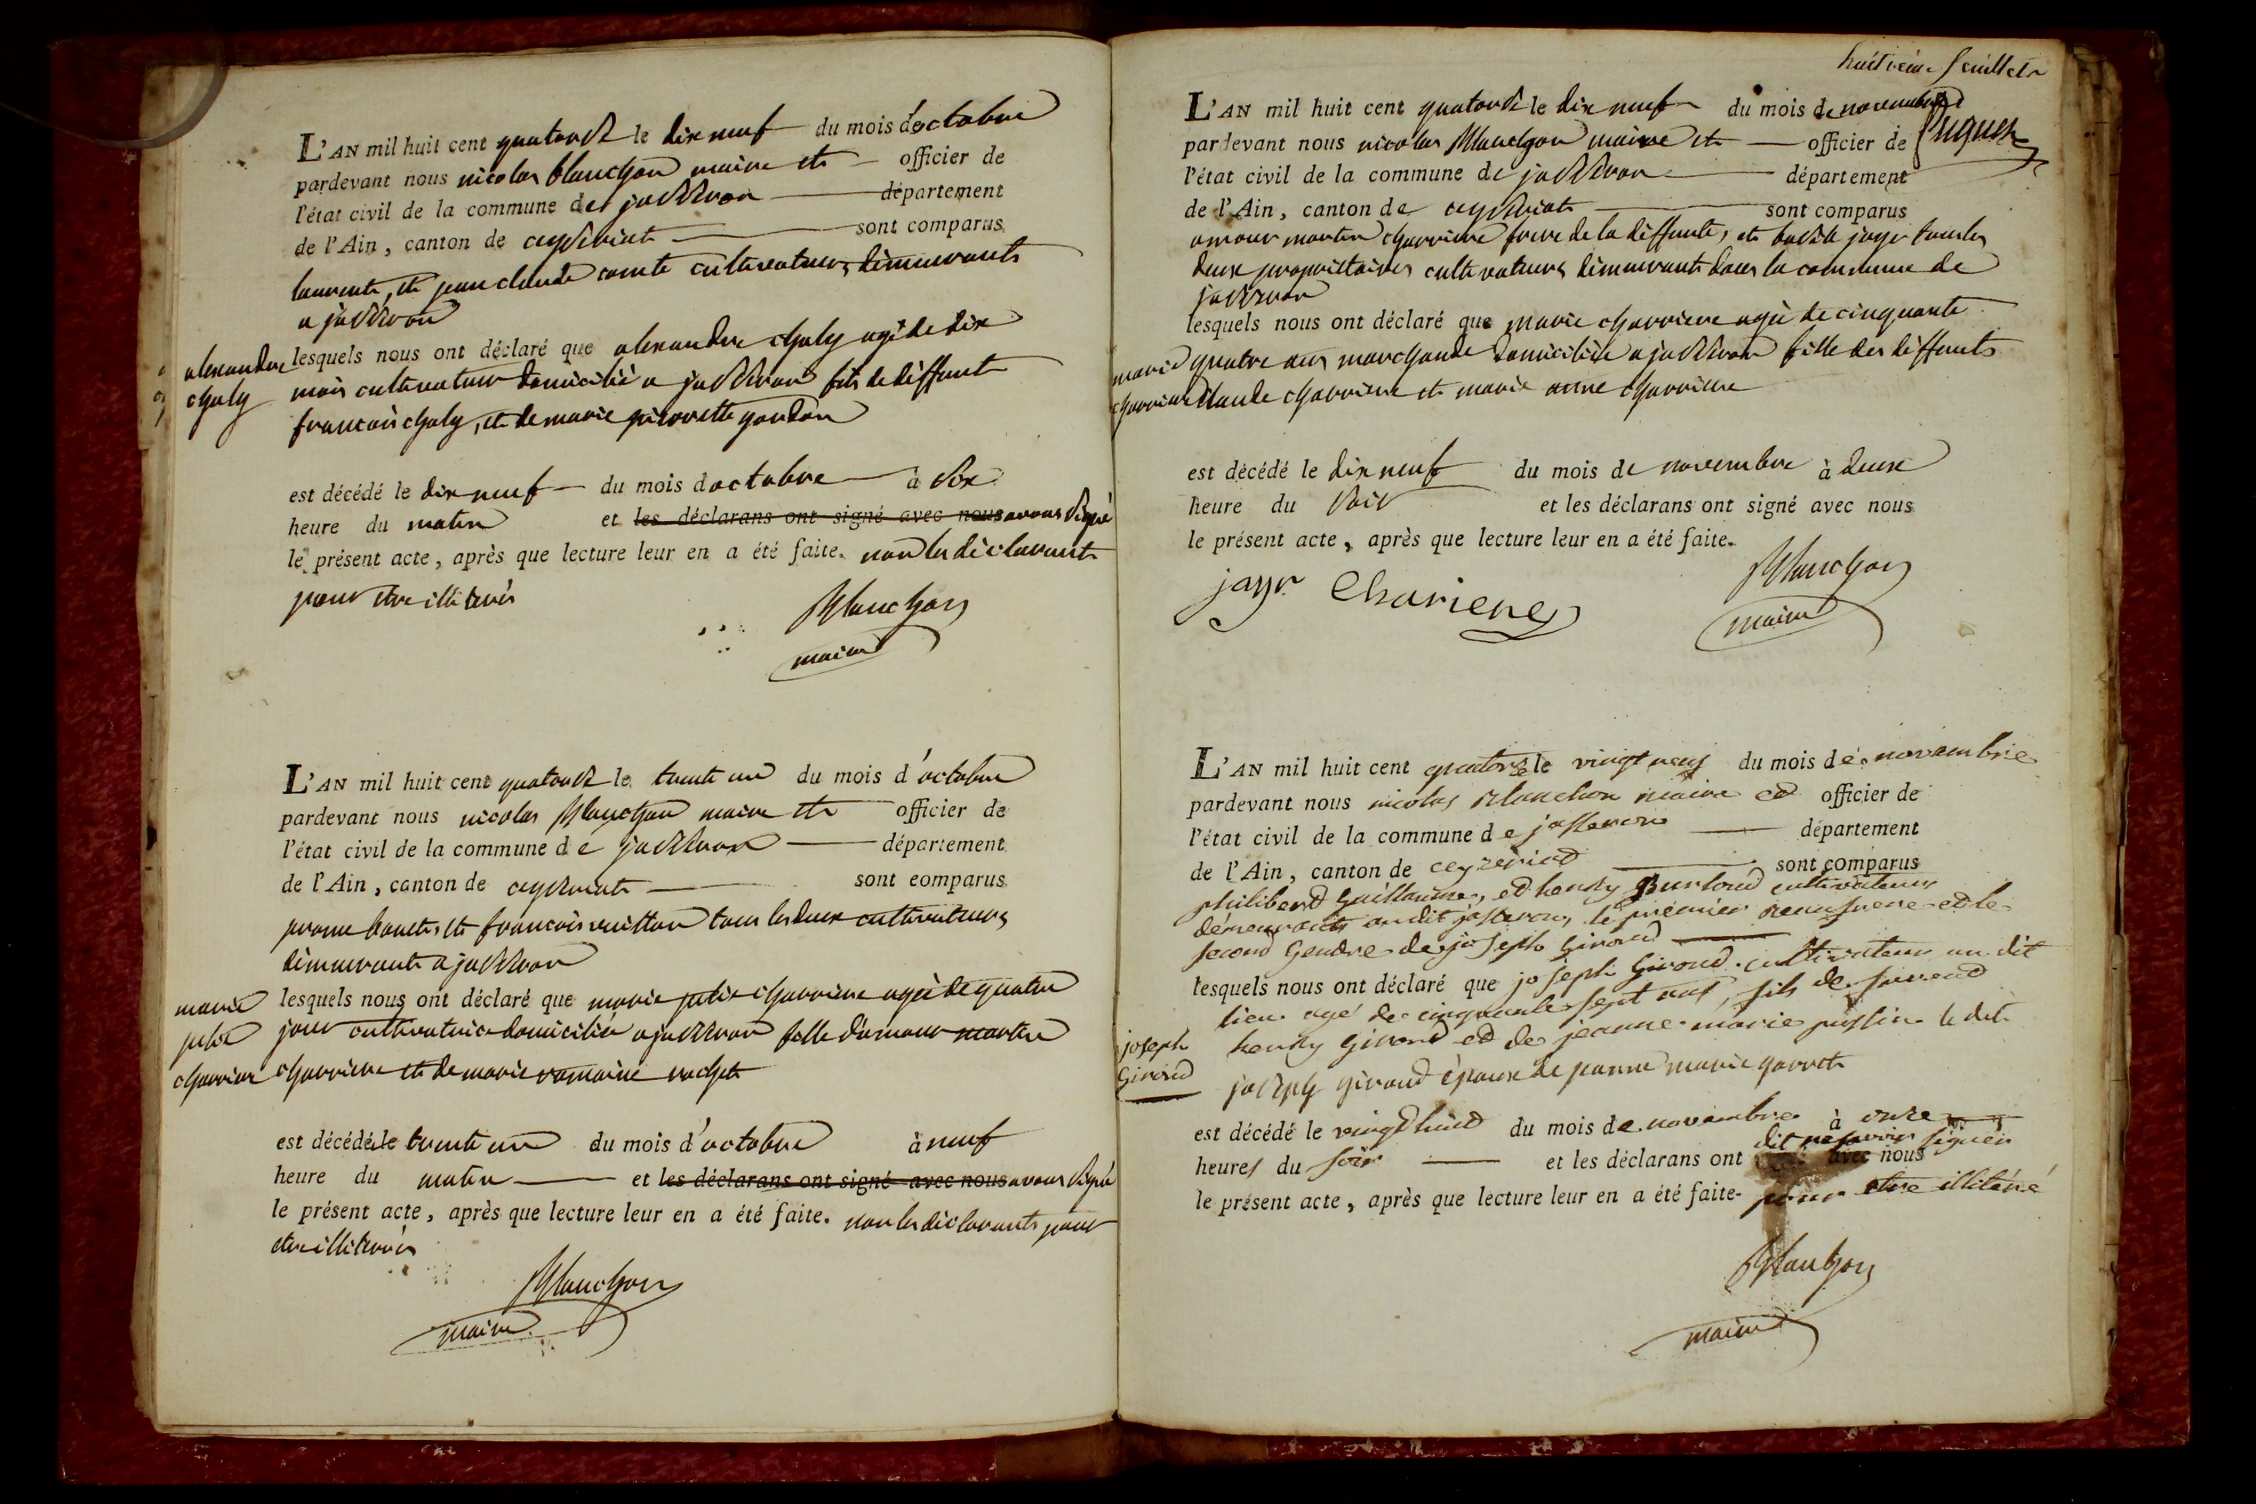 L'AN mil huit cent quatorze le dix neuf du mois d'octobre
pardevant nous nicolas blanchon maire et officier de
l'état civil de la commune de jasseron département
de l'Ain, canton de ceyseriat sont comparus
laurent, et jean claude comte cultivateurs dimeurants
a jasseron
lesquels nous ont déclaré que alexandre chaly agé de dix
alexandre
chaly
mois cultivateur domicilié a jasseron fils de diffunt
francois chaly, et de marie pierrette gordon
est décédé le dix neuf du mois d octobre à six
heure du matin et les déclarans ont signé avec nous avons signé
le présent acte, après que lecture leur en a été faite. non les déclarants
pour etre illiterés
Blanchon
maire
L'AN mil huit cent quatorze le trente un du mois d'octobre
pardevant nous nicolas Blanchon maire et officier de
l'état civil de la commune de jasseron département
de l'Ain, canton de ceyseriat sont eomparus
et francois vuitton tous les deux cultivateurs
dimeurants a jasseron
lesquels nous ont déclaré que marie julie charriere agée de quatre
marie
julie
charriere
jour cultivatrice domiciliée a jasseron fille d'amour martin
charriere et de marie romaine rochet
est décédé le trente un du mois d'octobre à neuf
heure du matin et les déclarans ont signé avec nous avons signé
le présent acte, après que lecture leur en a été faite. non les déclarants pour
etre illiterés
Blanchon
maire
huitieme feuillet
L'AN mil huit cent quatorze le dix neuf du mois de novembre
pardevant nous nicolas Blanchon maire et officier de
l'état civil de la commune de jasseron département
de l'Ain, canton de ceyseriat sont comparus
amour martin charriere frere de la diffunte, et jayr tous les
deux proprietaires cultivateurs dimeurants dans la commune de
jasseron
lesquels nous ont déclaré que marie charriere agée de cinquante
marie
charriere
quatre ans marchande domiciliée a jasseron fille des diffunts
claude charriere et marie anne charriere
est décédé le dix neuf du mois de novembre à deux
heure du soir et les déclarans ont signé avec nous
le présent acte, après que lecture leur en a été faite.
jayr Chariere
Blanchon
maire
L'AN mil huit cent quatorze le vingt neuf du mois de novembre
pardevant nous nicolas Blanchon maire et officier de
l'état civil de la commune de jasseron département
de l'Ain, canton de ceyzériat sont comparus
philibert Guillaume, et henry Burtoud cultivateurs
démeurants au dit jasseron, le premier beaufrere et le
second Gendre de joseph Giroud
lesquels nous ont déclaré que joseph Giroud cultivateur au dit
lieu agé de cinquante sept ans, fils de
joseph
Giroud
henry Giroud et de jeanne marie le dit
joseph giroud époux de jeanne marie
est décédé le vingt huit du mois de novembre à onze
heures du soir et les déclarans ont dit ne savoir signer avec nous
le présent acte, après que lecture leur en a été faite. pour etre illitéré
Blanchon
maire